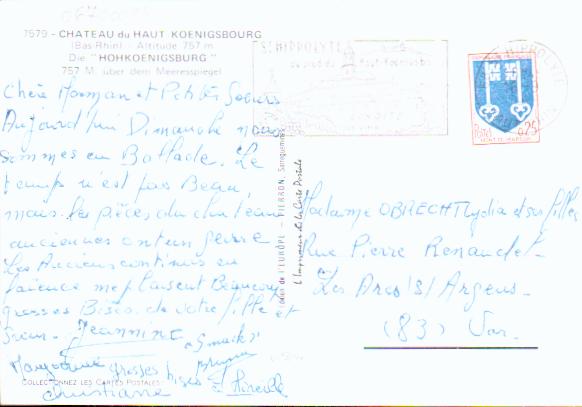 7579 - CHATEAU du HAUT KOENIGSBOURG
(Bas-Rhin) - Altitude 757 m
Die "HOHKOENIGSBURG"
757 M. über dem Meeresspiegel
Chère Maman et Petites Soeurs
Aujourd'hui Dimanche nous
sommes en Ballade. Le
temps n'est pas Beau,
mais les pièces du chateau
anciennes ont un genre
Les Anciens
faience me plaisent Beaucoup
grosses Bises de votre fille et
Soeur. Jeannine
grosses bises
Christiane
COLLECTIONNEZ LES CARTES POSTALES
Edition de l'EUROPE - PIERRON, Sarreguemines
L'Imprimeur de la Carte Postale
ST HIPPOLYTE
au pied du Haut-Koenigsbourg
ST HIPPOLYTE
Postes
0,25
MONT-DE-MARSAN
Madame OBRECHT Lydia et ses filles
Rue Pierre Renaudel
Les Arcs s/ Argens
(83) Var.